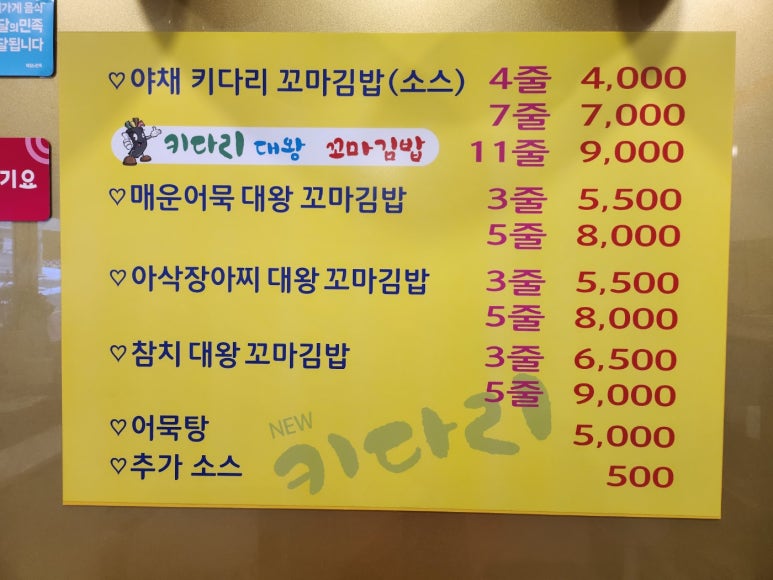 가게 음식
달의민족
달됩니다
기요
♡야채 키다리 꼬마김밥(소스) 4줄 4,000
7줄 7,000
키다리 대왕 꼬마김밥 11줄 9,000
♡매운어묵 대왕 꼬마김밥 3줄 5,500
5줄 8,000
♡아삭장아찌 대왕 꼬마김밥 3줄 5,500
5줄 8,000
♡참치 대왕 꼬마김밥 3줄 6,500
5줄 9,000
♡어묵탕 5,000
♡추가 소스 500
NEW
키다리